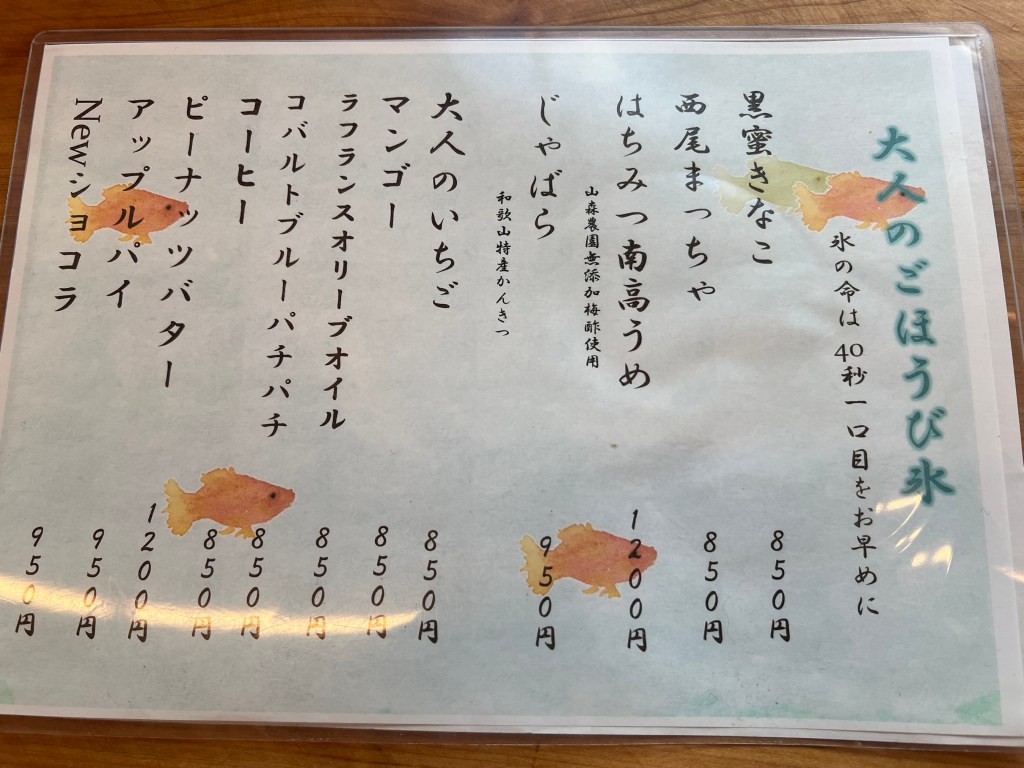 大人のごほうび氷
氷の命は40秒一口目をお早めに
黒蜜きなこ 850円
西尾まっちゃ 850円
はちみつ南高うめ 1200円
山森農園無添加梅酢使用
じゃばら 950円
和歌山特産かんきつ
大人のいちご 850円
マンゴー 850円
ラフランスオリーブオイル 850円
コバルトブルーパチパチ 850円
コーヒー 850円
ピーナッツバター 1200円
アップルパイ 950円
Newショコラ 950円